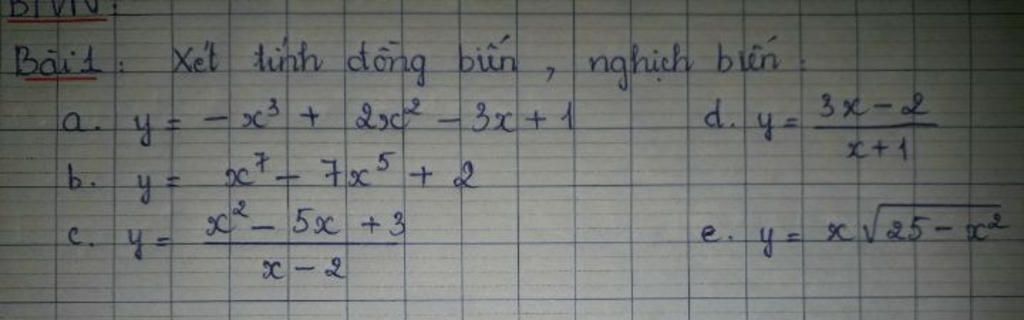 BTVN:
Bài 1: Xét tính đồng biến, nghịch biến:
a. y = -x³ + 2x² - 3x + 1
d. y = (3x - 2)/(x + 1)
b. y = x⁷ - 7x⁵ + 2
c. y = (x² - 5x + 3)/(x - 2)
e. y = x√(25 - x²)